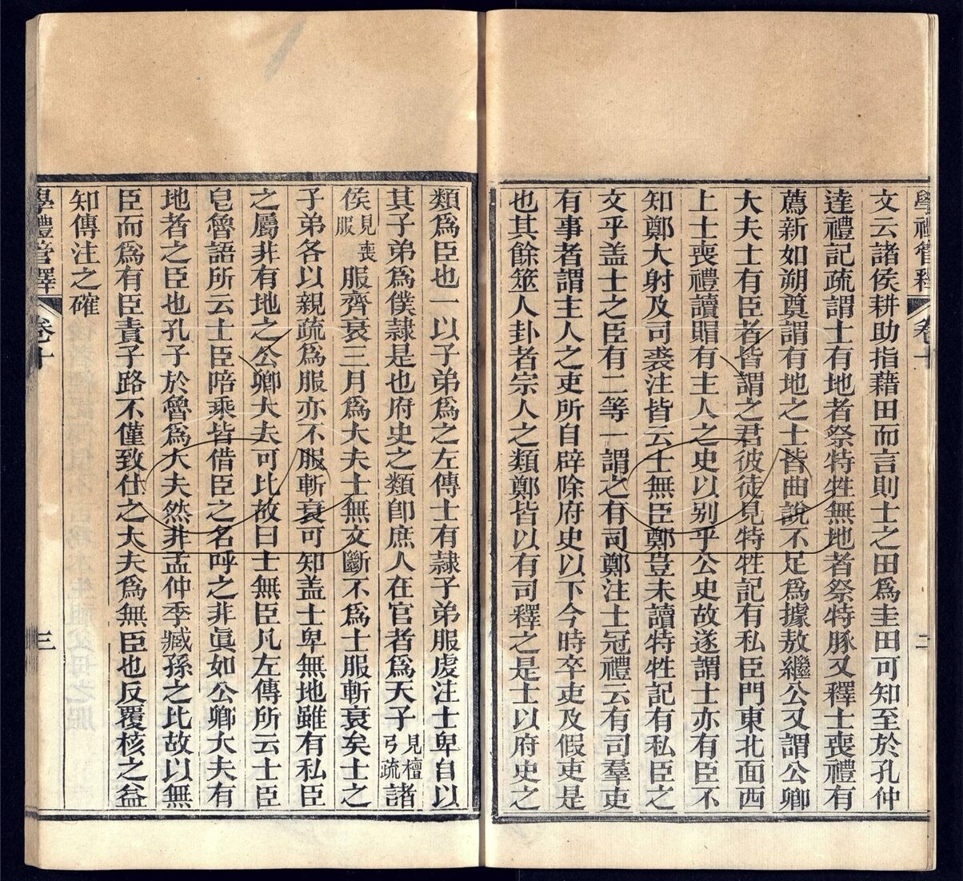 學禮管釋 卷十 二
文云諸侯耕助指藉田而言則士之田爲圭田可知至於孔仲
達禮記疏謂士有地者祭特牲無地者祭特豚又釋士喪禮有
薦新如朔奠謂有地之士皆曲說不足爲據敖繼公又謂公卿
大夫士有臣者皆謂之君彼徒見特牲記有私臣門東北面西
上士喪禮讀賵有主人之史以别乎公史故遂謂士亦有臣不
知鄭大射及司裘注皆云士無臣鄭豈未讀特牲記有私臣之
文乎盖士之臣有二等一謂之有司鄭注士冠禮云有司羣吏
有事者謂主人之吏所自辟除府史以下今時卒吏及假吏是
也其餘筮人卦者宗人之類鄭皆以有司釋之是士以府史之
類爲臣也一以子弟爲之左傳士有隷子弟服虔注士卑自以
其子弟爲僕隷是也府史之類卽庶人在官者爲天子見檀弓疏諸
侯見喪服服齊衰三月爲大夫士無文斷不爲士服斬衰矣士之
子弟各以親疏爲服亦不服斬衰可知盖士卑無地雖有私臣
之屬非有地之公卿大夫可比故曰士無臣凡左傳所云士臣
皂魯語所云士臣陪乘皆借臣之名呼之非眞如公卿大夫有
地者之臣也孔子於魯爲大夫然非孟仲季臧孫之比故以無
臣而爲有臣責子路不僅致仕之大夫爲無臣也反覆核之益
知傳注之確
學禮管釋 卷十 三